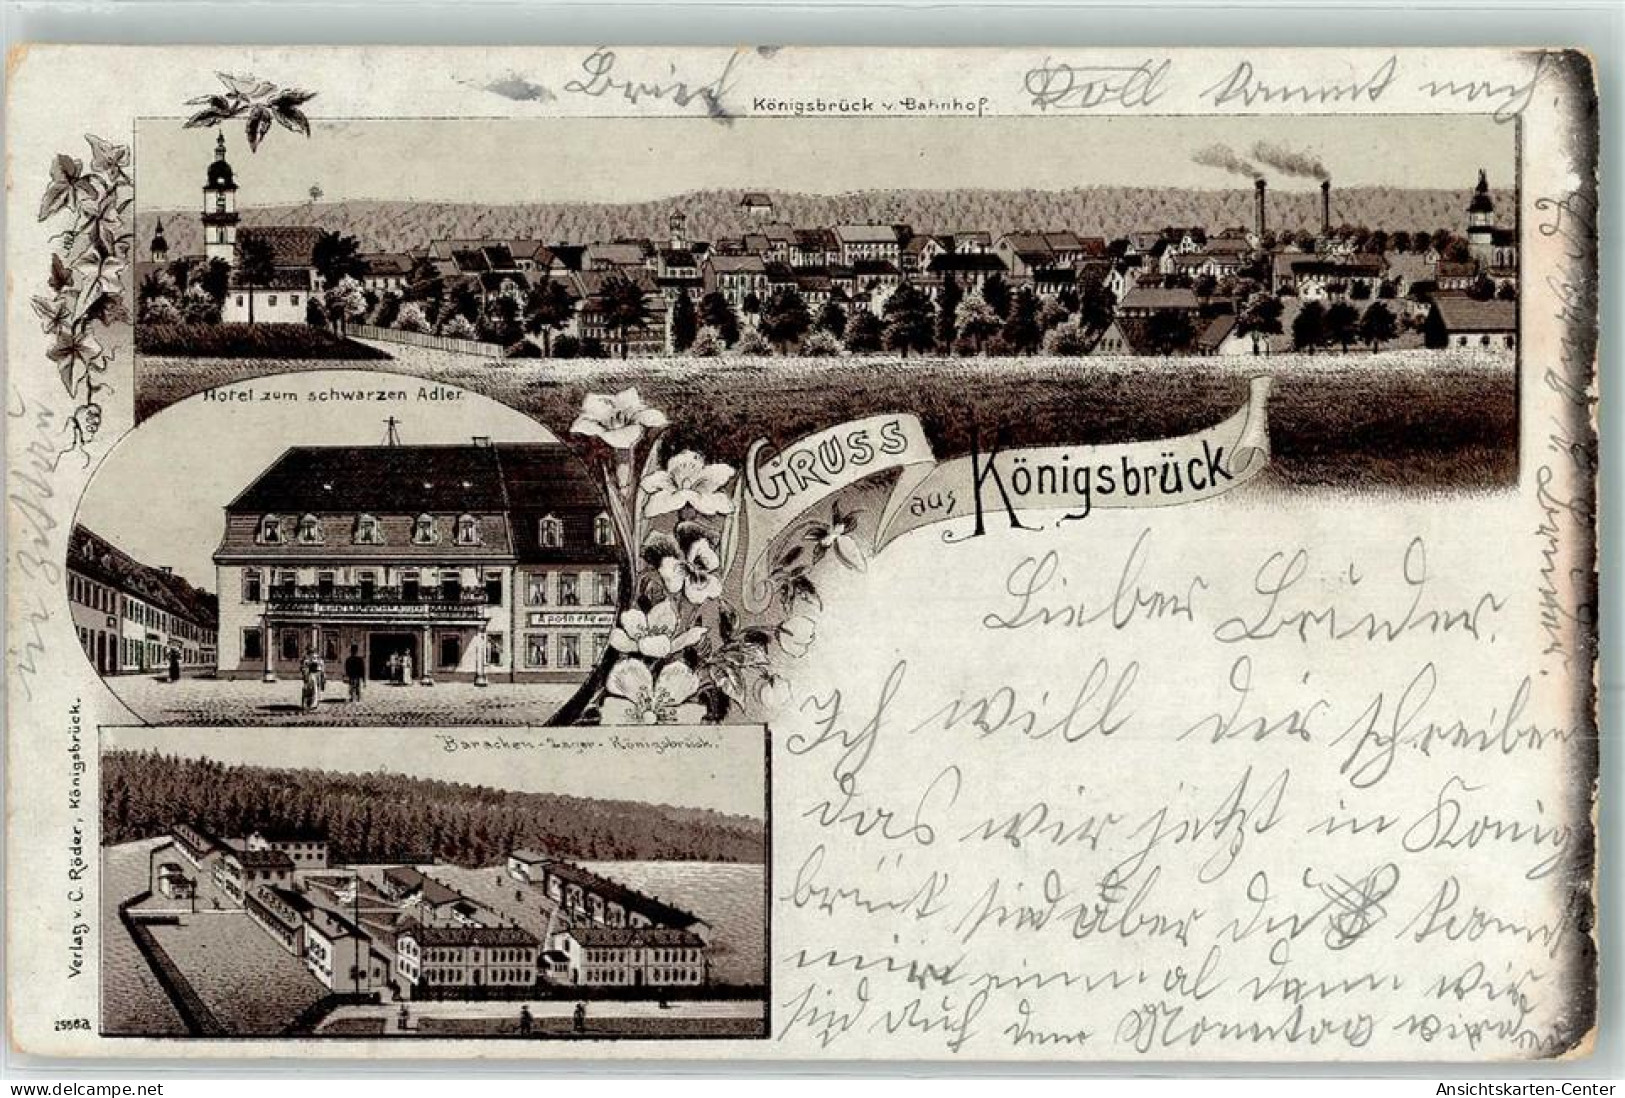 Brief
Doll kommt nach.
Königsbrück v. Bahnhof.
Hotel zum schwarzen Adler.
Apotheke
GRUSS
aus Königsbrück
Baracken-Lager-Königsbrück.
Verlag v. C. Röder, Königsbrück.
2556.a
Lieber Bruder.
Ich will dir schreiben
das wir jetzt in König
brück sind aber du
mir einmal dann wir
sind auch dem Monntag wird
in
Ansichtskarten-Center